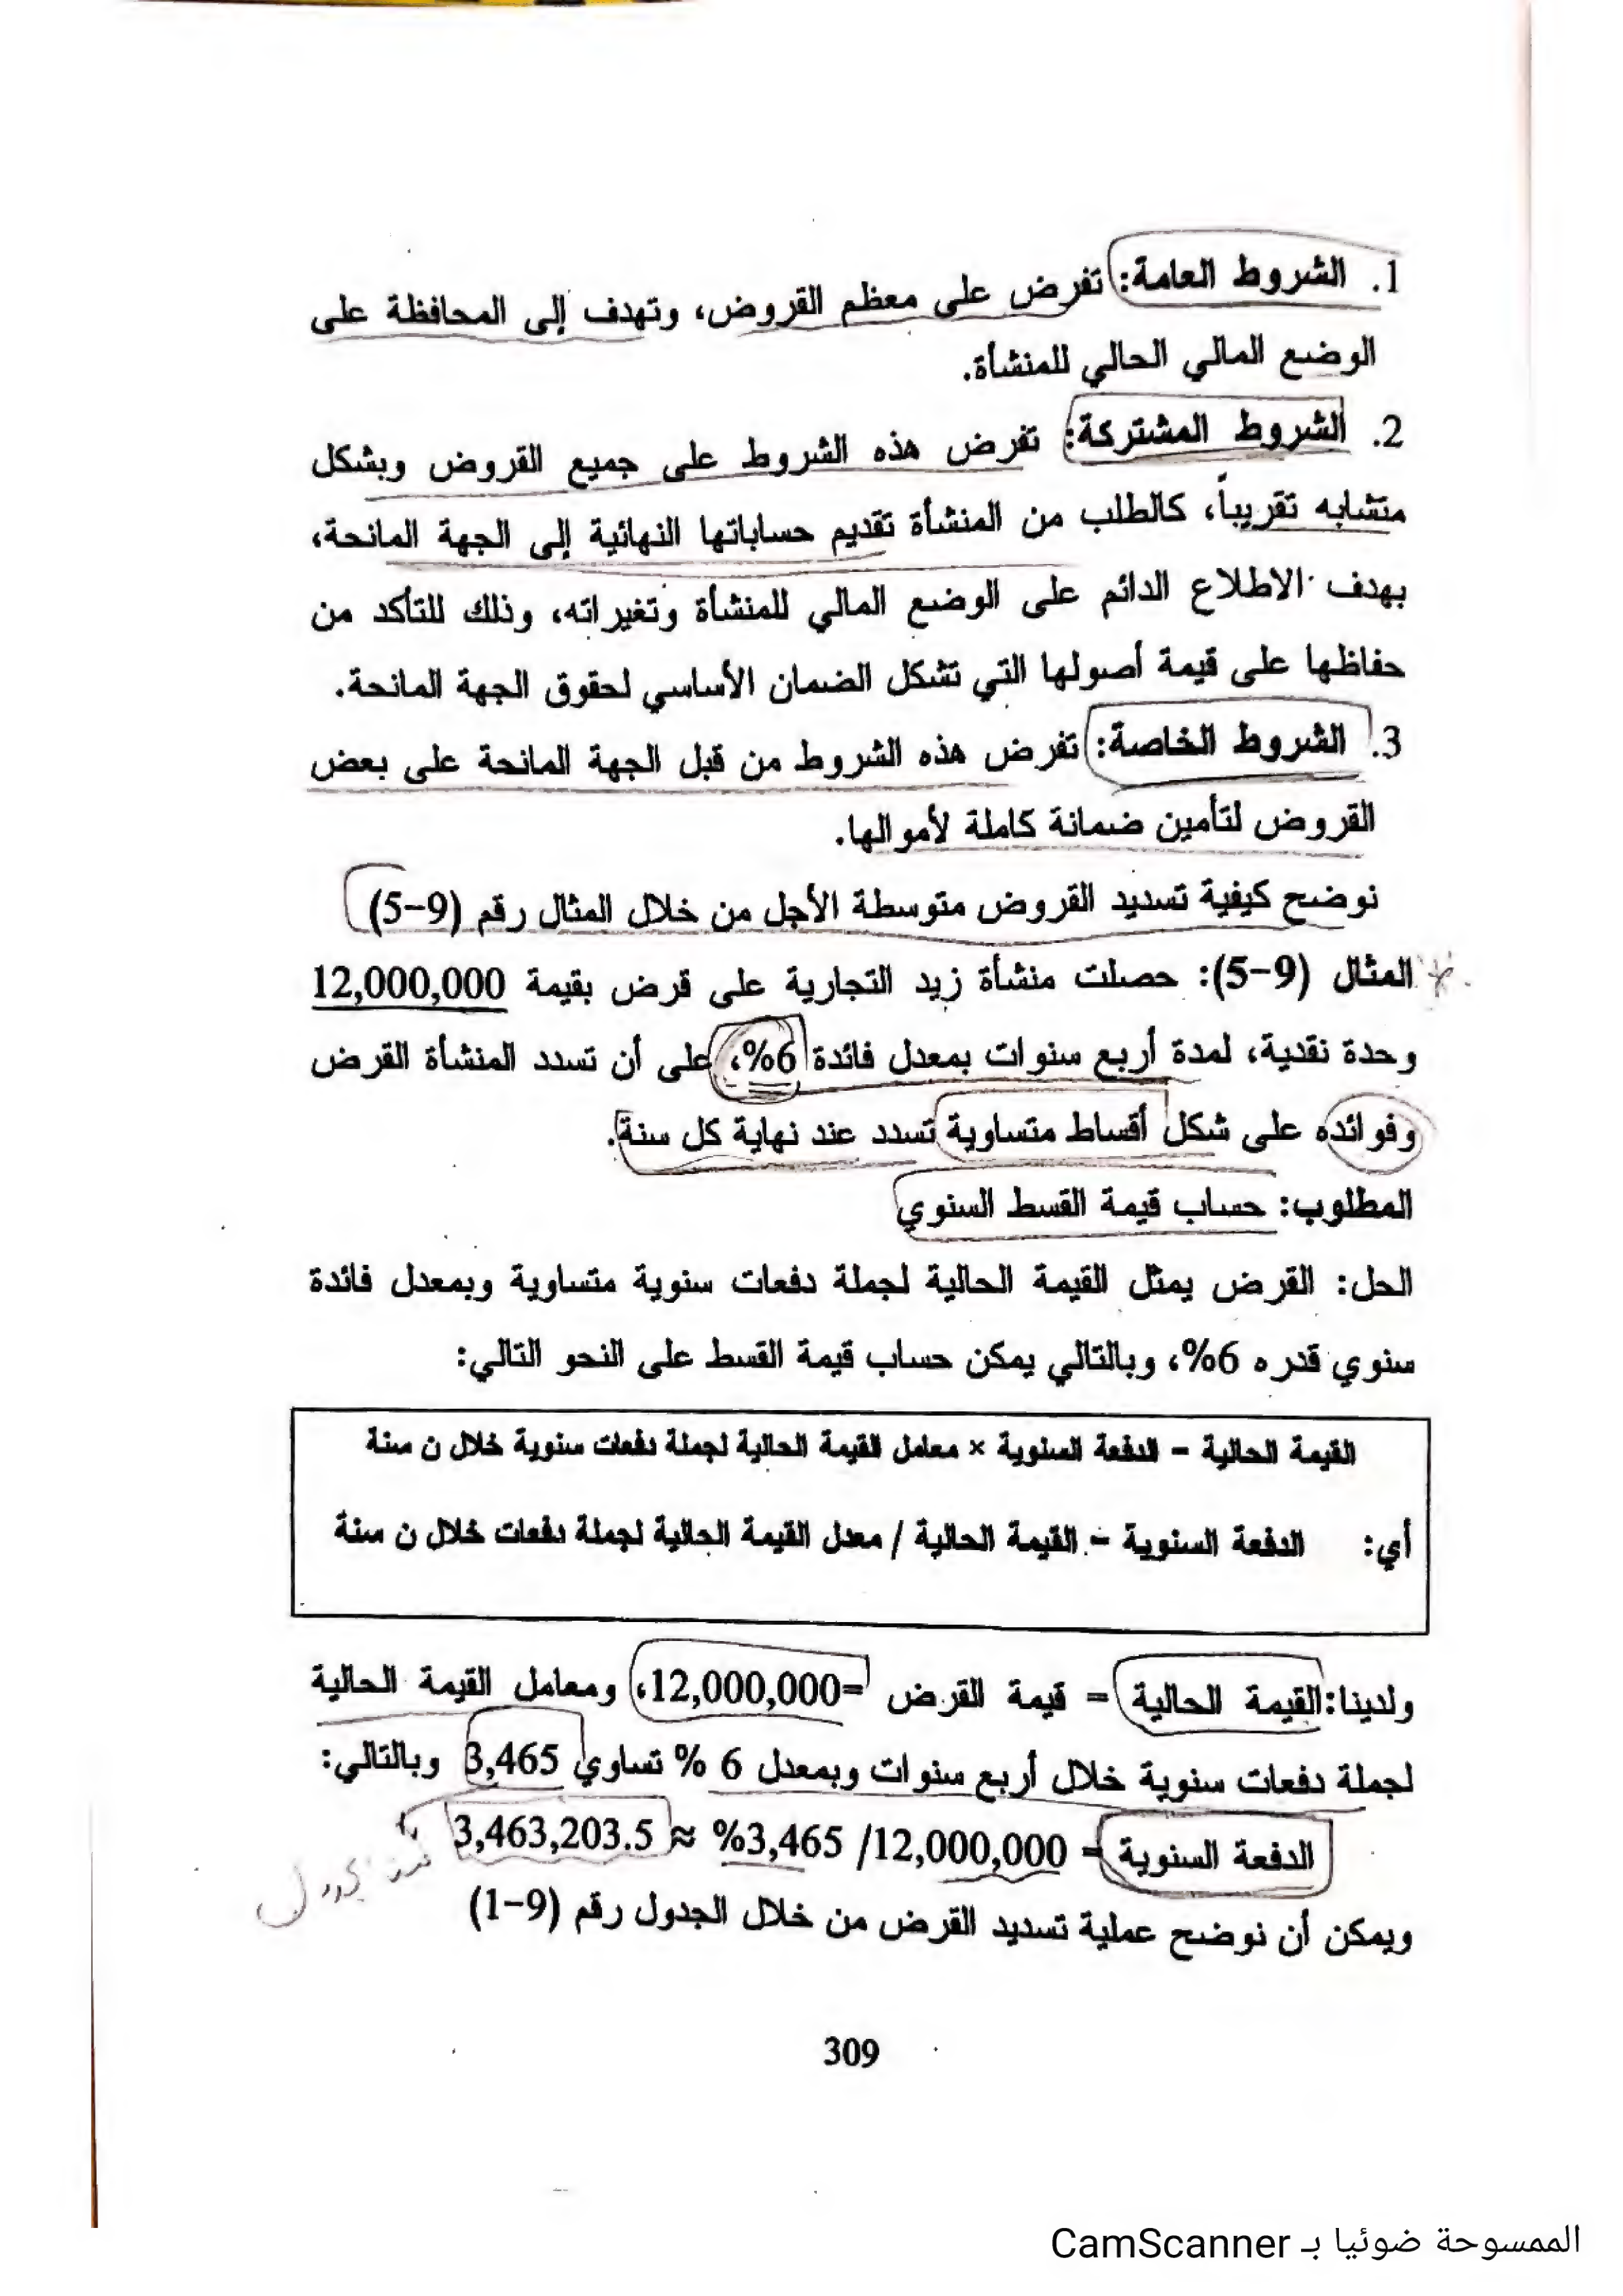 1. الشروط العامة: تفرض على معظم القروض، وتهدف إلى المحافظة على
الوضع المالي الحالي للمنشأة.
2. الشروط المشتركة: تفرض هذه الشروط على جميع القروض وبشكل
متشابه تقريباً، كالطلب من المنشأة تقديم حساباتها النهائية إلى الجهة المانحة،
بهدف الاطلاع الدائم على الوضع المالي للمنشأة وتغيراته، وذلك للتأكد من
حفاظها على قيمة أصولها التي تشكل الضمان الأساسي لحقوق الجهة المانحة.
3. الشروط الخاصة: تفرض هذه الشروط من قبل الجهة المانحة على بعض
القروض لتأمين ضمانة كاملة لأموالها.
نوضح كيفية تسديد القروض متوسطة الأجل من خلال المثال رقم (9-5)
المثال (9-5): حصلت منشأة زيد التجارية على قرض بقيمة 12,000,000
وحدة نقدية، لمدة أربع سنوات بمعدل فائدة 6%، على أن تسدد المنشأة القرض
وفوائده على شكل أقساط متساوية تسدد عند نهاية كل سنة.
المطلوب: حساب قيمة القسط السنوي
الحل: القرض يمثل القيمة الحالية لجملة دفعات سنوية متساوية وبمعدل فائدة
سنوي قدره 6%، وبالتالي يمكن حساب قيمة القسط على النحو التالي:
القيمة الحالية = الدفعة السنوية × معامل القيمة الحالية لجملة دفعات سنوية خلال ن سنة
أي: الدفعة السنوية = القيمة الحالية / معدل القيمة الحالية لجملة دفعات خلال ن سنة
ولدينا: القيمة الحالية = قيمة القرض =12,000,000، ومعامل القيمة الحالية
لجملة دفعات سنوية خلال أربع سنوات وبمعدل 6 % تساوي 3,465 وبالتالي:
الدفعة السنوية = 12,000,000/ 3,465% ≈ 3,463,203.5
ويمكن أن نوضح عملية تسديد القرض من خلال الجدول رقم (9-1)
309
الممسوحة ضوئيا بـ CamScanner